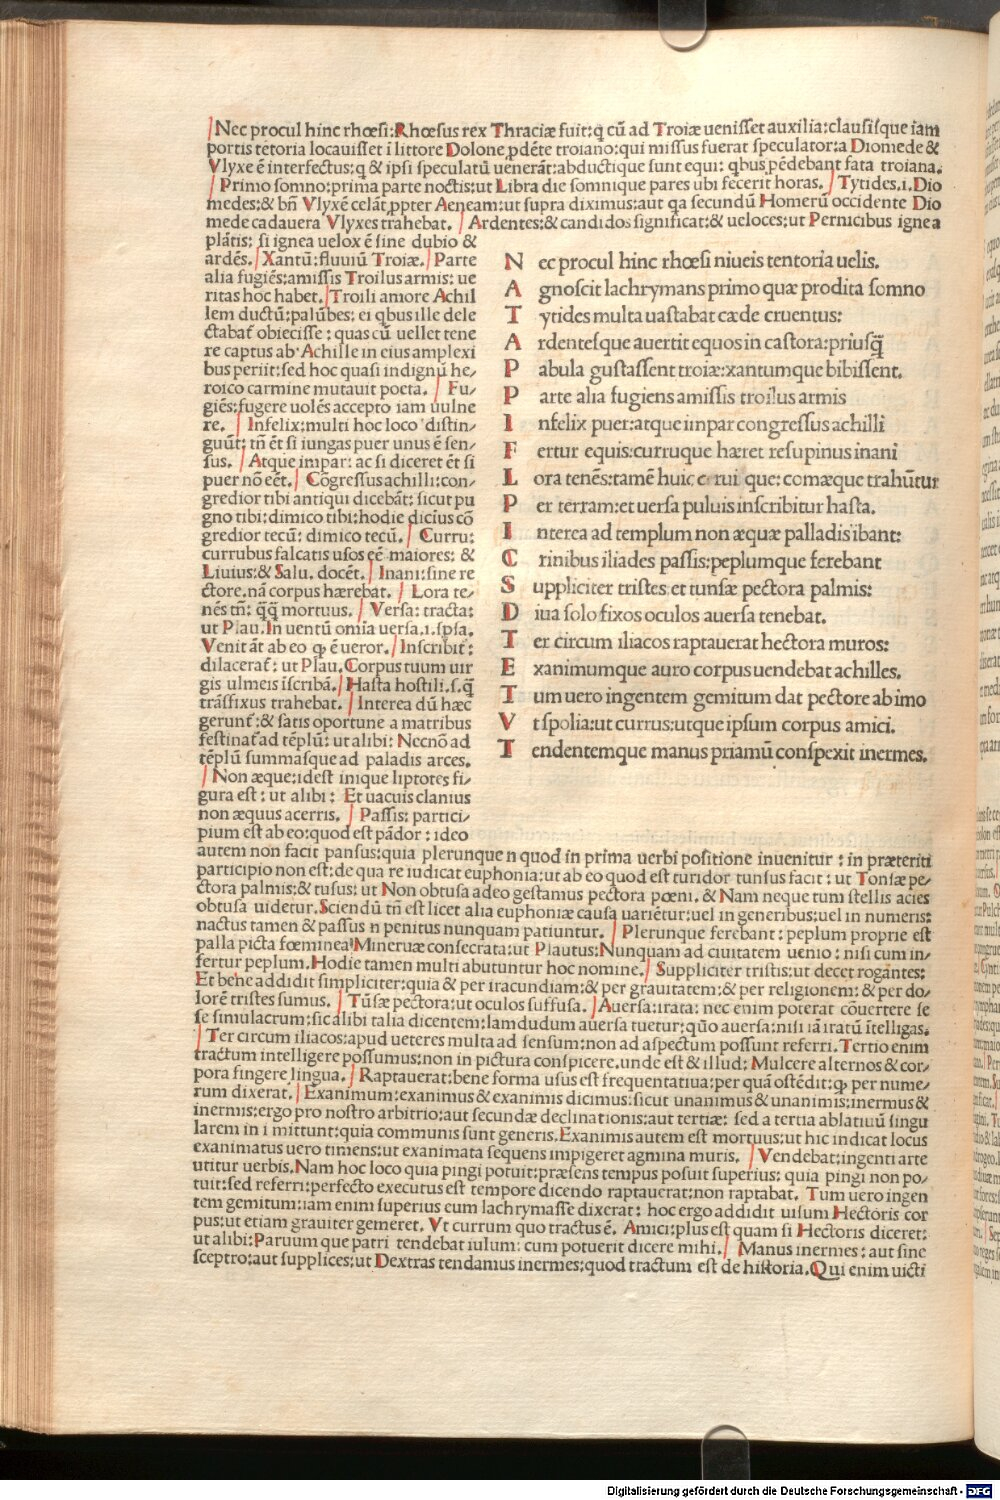 Nec procul hinc rhœsi:Rhœsus rex Thraciæ fuit:q̃ cũ ad Troiæ ueniſſet auxilia:clauſiſque iam
portis tẽtoria locauiſſet ĩ littore Dolone ꝓdẽte troiano:qui miſſus fuerat ſpeculator:a Diomede &
Vlyxe ẽ interfectus:q & ipſi ſpeculatũ uenerãt:abductique ſunt equi: qbus pẽdebant fata troiana.
Primo ſomno:prima parte noctis:ut Libra die ſomnique pares ubi fecerit horas. Tytides.i.Dio
medes:& bñ Vlyxẽ celãt ꝓpter Aeneam:ut ſupra diximus:aut qa ſecundũ Homerũ occidente Dio
mede cadauera Vlyxes trahebat. Ardentes:& candidos ſignificat:& ueloces:ut Pernicibus ignea
plãtis: ſi ignea uelox ẽ ſine dubio &
ardẽs. Xantũ:fluuiũ Troiæ. Parte
alia fugiẽs:amiſſis Troilus armis: ue
ritas hoc habet. Troili amore Achil
lem ductũ:palũbes: ei qbus ille dele
ctabat̃ obieciſſe : quas cũ uellet tene
re captus ab Achille in eius amplexi
bus periit:ſed hoc quaſi indignũ he⸗
roico carmine mutauit poeta. Fu⸗
giẽs:fugere uolẽs accepto iam uulne
re. Infelix:multi hoc loco diſtin⸗
guũt: tñ ẽt ſi iungas puer unus ẽ ſen⸗
ſus. Atque impar: ac ſi diceret ẽt ſi
puer nõ eẽt. Cõgreſſus achilli:con⸗
gredior tibi antiqui dicebãt: ſicut pu
gno tibi:dimico tibi:hodie diciũs cõ
gredior tecũ: dimico tecũ. Curru:
currubus falcatis uſos eẽ maiores: &
Liuius:& Salu. docẽt. Inani:ſine re
ctore.nã corpus hærebat. Lora te⸗
nẽs tñ: q̃q̃ mortuus. Verſa: tracta:
ut Plau.In uentũ omĩa uerſa.i.ſpſa.
Venit ãt ab eo ꝙ ẽ ueror. Inſcribit̃:
dilacerat̃: ut Plau.Corpus tuum uir
gis ulmeis iſcribã. Haſta hoſtili.ſ.q̃
trãſfixus trahebat. Interea dũ hæc
gerunt̃:& ſatis oportune a matribus
feſtinat̃ ad tẽplũ: ut alibi: Necnõ ad
tẽplũ ſummaſque ad paladis arces.
Non æque:idest inique liptotes fi⸗
gura eſt : ut alibi : Et uacuis clanius
non æquus acerris. Paſſis: partici⸗
pium eſt ab eo:quod eſt pãdor : ideo
N ec procul hinc rhœſi niueis tentoria uelis.
A gnoſcit lachrymans primo quæ prodita ſomno
T ytides multa uaſtabat cæde cruentus:
A rdenteſque auertit equos in caſtora:priuſq̃
P abula guſtaſſent troiæ:xantumque bibiſſent.
P arte alia fugiens amiſſis troilus armis
I nfelix puer:atque iinpar congreſſus achilli
F ertur equis:curruque hæret reſupinus inani
L ora tenẽs:tamẽ huic que: comæque trahũtur
P er terram:et uerſa puluis inſcribitur haſta.
I nterea ad templum non æquæ palladis ibant:
C rinibus iliades paſſis:peplumque ferebant
S uppliciter triſtes et tunſæ pectora palmis:
D iua ſolo fixos oculos auerſa tenebat.
T er circum iliacos raptauerat hectora muros:
E xanimumque auro corpus uendebat achilles.
T um uero ingentem gemitum dat pectore ab imo
V t ſpolia:ut currus:utque ipſum corpus amici.
T endentemque manus priamũ conſpexit inermes.
autem non facit panſus:quia plerunque n quod in prima uerbi poſitione inuenitur : in præteriti
participio non eſt:de qua re iudicat euphonia:ut ab eo quod eſt turidor tunſus facit : ut Tonſæ pe⸗
ctora palmis:& tuſus: ut Non obtuſa adeo geſtamus pectora pœni. & Nam neque tum ſtellis acies
obtuſa uidetur.Sciendũ tñ eſt licet alia euphoniæ cauſa uarietur:uel in generibus:uel in numeris:
nactus tamen & paſſus n penitus nunquam patiuntur. Plerunque ferebant : peplum proprie eſt
palla picta fœminea Mineruæ conſecrata:ut Plautus:Nunquam ad ciuitatem uenio : niſi cum in⸗
fertur peplum.Hodie tamen multi abutuntur hoc nomine. Suppliciter triſtis:ut decet rogantes:
Et bene addidit ſimpliciter:quia & per iracundiam:& per grauitatem:& per religionem: & per do⸗
lorẽ triſtes ſumus. Tũſæ pectora:ut oculos ſuffuſa. Auerſa:irata: nec enim poterat cõuertere ſe
ſe ſimulacrum:ſic alibi talia dicentem:Iamdudum auerſa tuetur:quo auerſa:niſi iã iratũ ĩtelligas.
Ter circum iliacos:apud ueteres multa ad ſenſum:non ad aſpectum poſſunt referri.Tertio enim
tractum intelligere poſſumus:non in pictura conſpicere.unde eſt & illud: Mulcere alternos & cor⸗
pora fingere lingua. Raptauerat:bene forma uſus eſt frequentatiua:per quã oſtẽdit:ꝙ per nume⸗
rum dixerat. Exanimum:exanimus & exanimis dicimus:ſicut unanimus & unanimis:inermus &
inermis:ergo pro noſtro arbitrio:aut ſecundæ declinationis:aut tertiæ: ſed a tertia ablatiuũ ſingu
larem in i mittunt:quia communis ſunt generis.Exanimis autem eſt mortuus:ut hic indicat locus
exanimatus uero timens:ut exanimata ſequens impigeret agmina muris. Vendebat:ingenti arte
utitur uerbis.Nam hoc loco quia pingi potuit:præſens tempus poſuit ſuperius: quia pingi non po⸗
tuit:ſed referri:perfecto executus eſt tempore dicendo raptauerat:non raptabat. Tum uero ingen
tem gemitum:iam enim ſuperius eum lachrymaſſe dixerat: hoc ergo addidit uiſum Hectoris cor
pus:ut etiam grauiter gemeret. Vt currum quo tractus ẽ. Amici:plus eſt quam ſi Hectoris diceret:
ut alibi:Paruum que patri tendebat iulum: cum potuerit dicere mihi. Manus inermes : aut ſine
ſceptro:aut ſupplices:ut Dextras tendamus inermes:quod tractum eſt de hiſtoria.Qui enim uicti
Digitalisierung gefördert durch die Deutsche Forschungsgemeinschaft - DFG